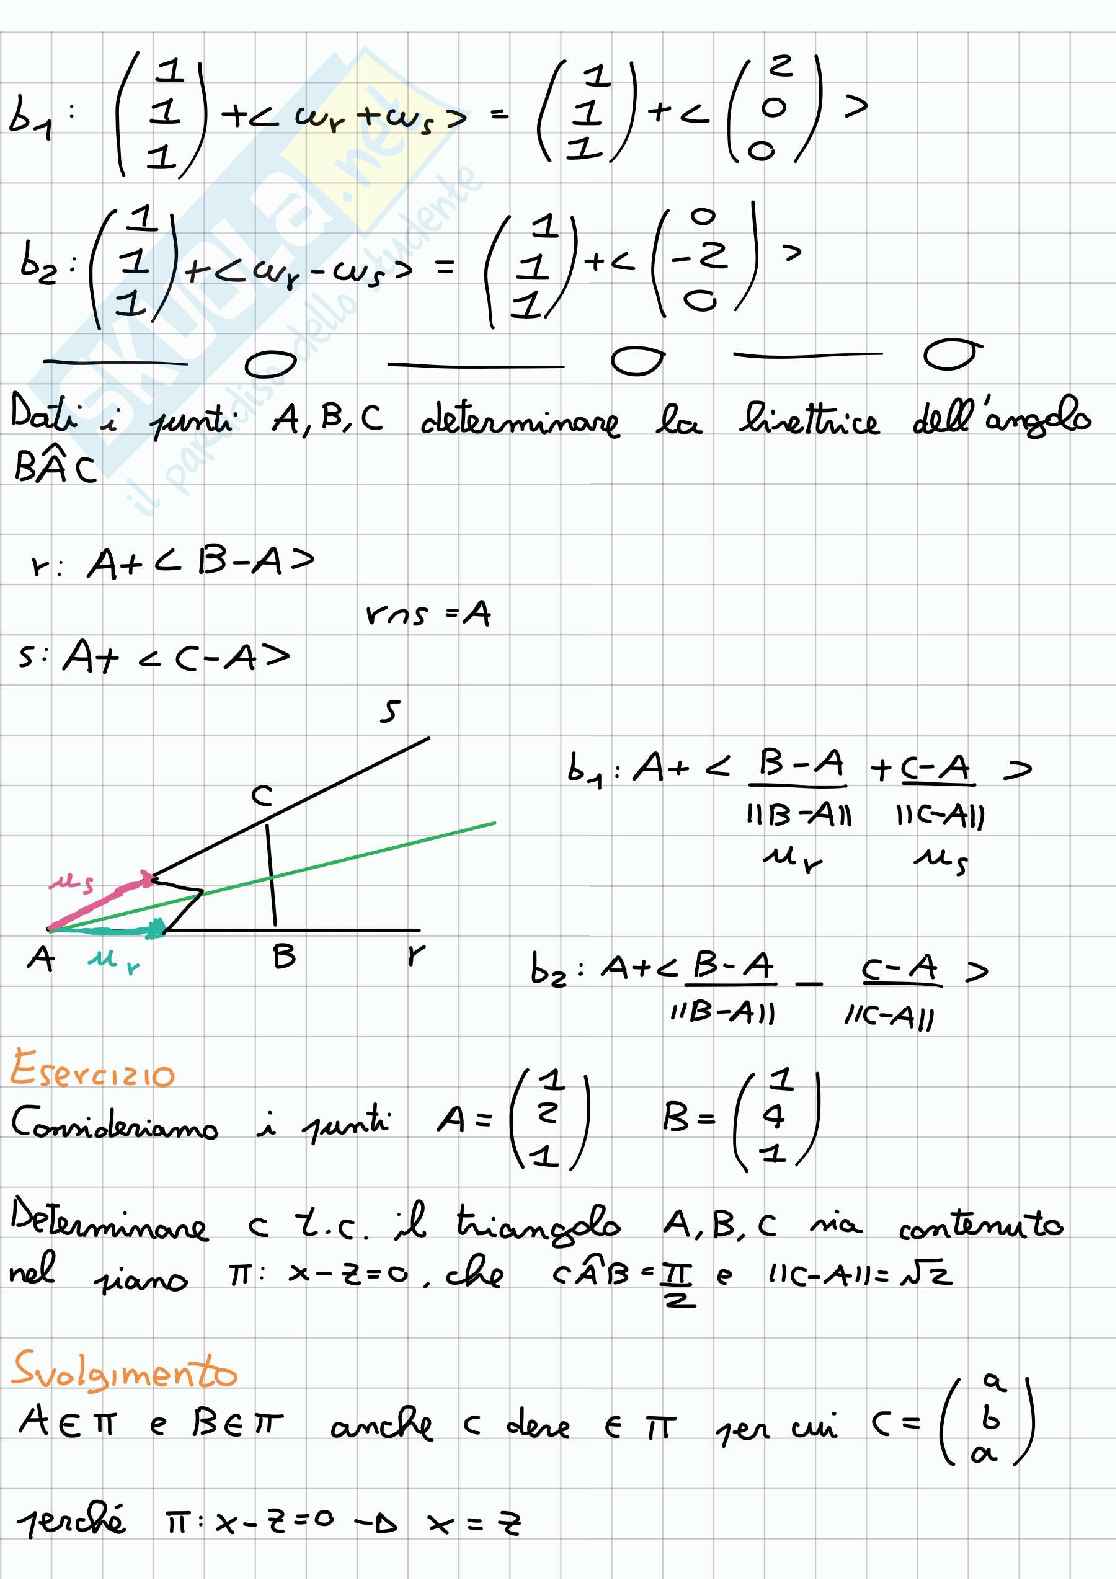 b₁: (1 1 1) + < ωr + ωs > = (1 1 1) + < (2 0 0) >
b₂: (1 1 1) + < ωr - ωs > = (1 1 1) + < (0 -2 0) >
SKUOLA.net
il paradiso dello studente
Dati i punti A, B, C determinare la bisettrice dell'angolo
BÂC
r: A + < B-A >
r∩s = A
s: A + < C-A >
s
C
μs
A
μr
B
r
b₁: A + < B-A/||B-A|| + C-A/||C-A|| >
μr μs
b₂: A + < B-A/||B-A|| - C-A/||C-A|| >
Esercizio
Consideriamo i punti A = (1 2 1) B = (1 4 1)
Determinare C t.c. il triangolo A, B, C sia contenuto
nel piano π: x-z=0, che CÂB = π/2 e ||C-A|| = √2
Svolgimento
A ∈ π e B ∈ π anche C deve ∈ π per cui C = (a b a)
perché π: x-z=0 → x = z